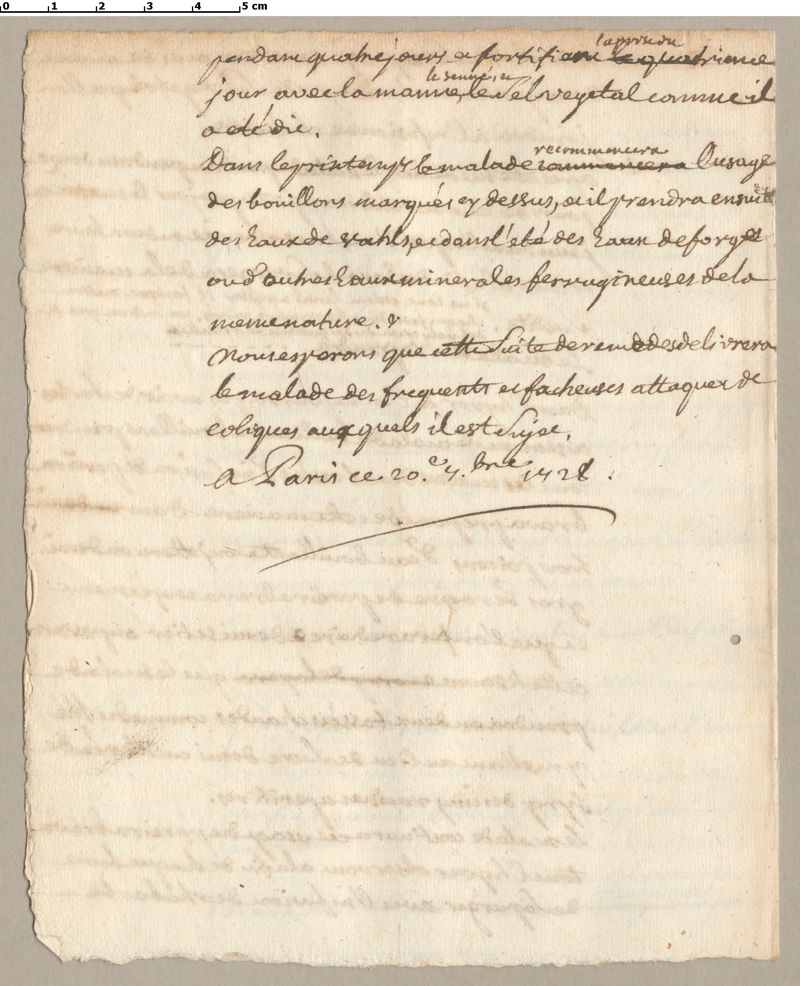 0 1 2 3 4 5 cm
la prise du
pendant quatre jours et fortifiant le quatrieme
le senné, et
jour avec la manne, le Sel vegetal comme il
a eté dit.
recommencera
Dans le printemps le malade commencera l'usage
des bouillons marqués cy dessus, et il prendra ensuitte
des Eaux de vahls, et dans l'été des Eaux de forges
ou d'autres Eaux minerales ferrugineuses de la
meme nature.
Nous esperons que cette Suite de remedes delivrera
le malade des frequents et facheuses attaques de
coliques auxquels il est Sujet.
A Paris ce 20.e 7.bre 1728.